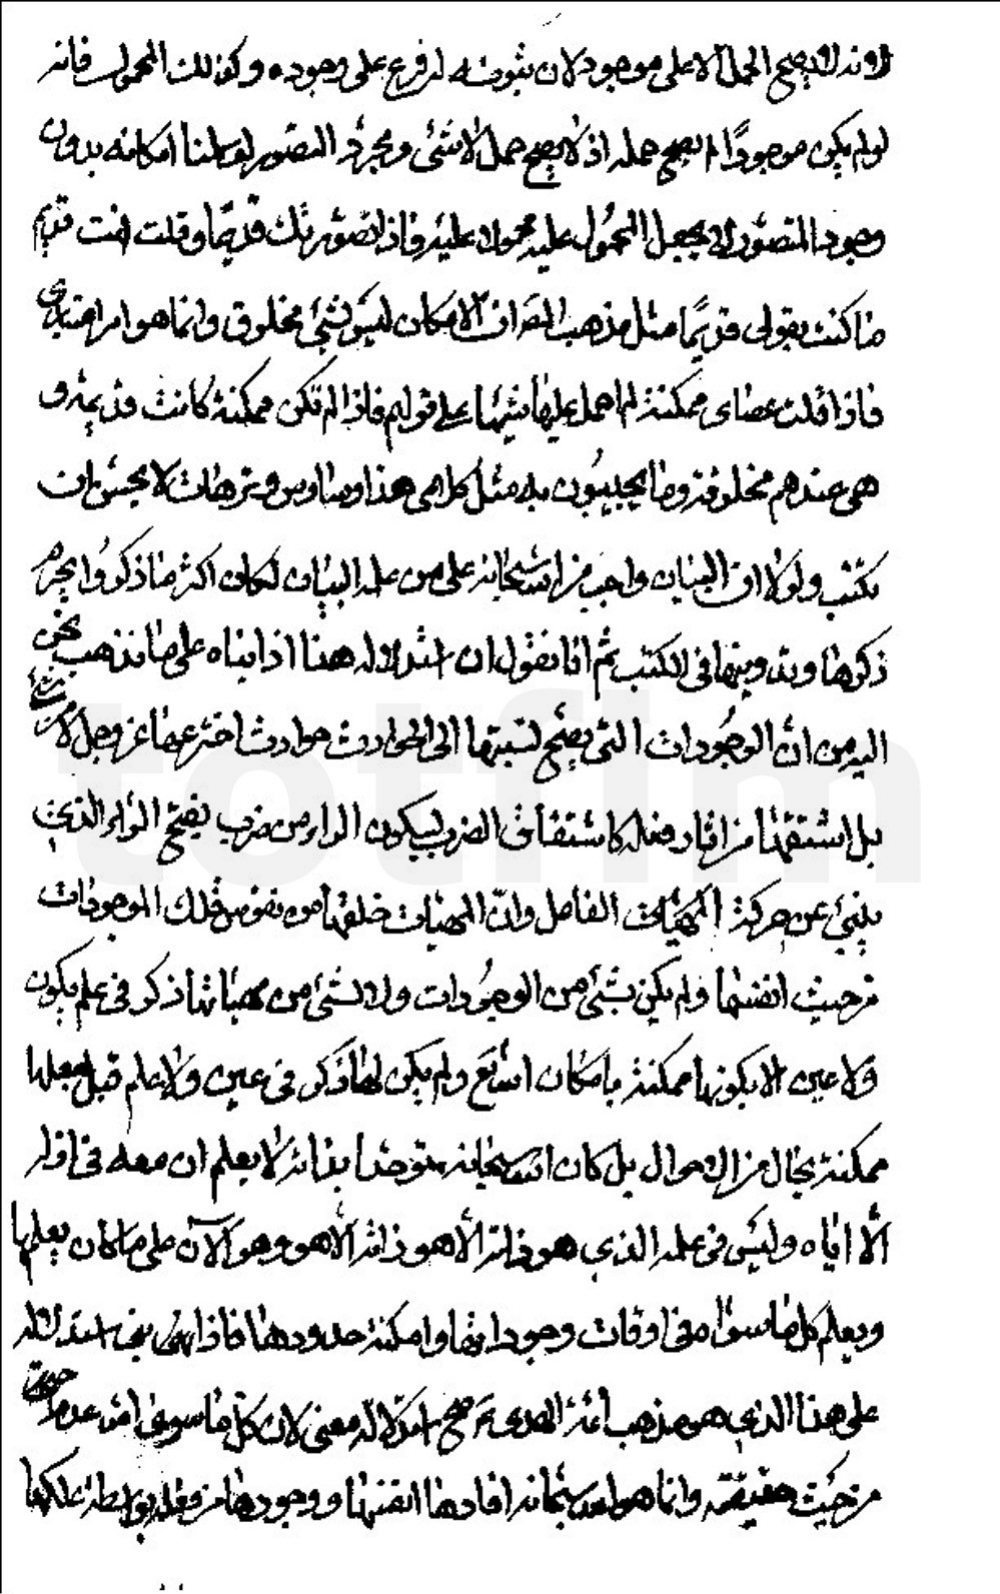 لا يصح الحمل الا على موجود لان ثبوت له فرع على وجوده وكذلك المحمول فانه
لو لم يكن موجودًا لم يصح حمله اذ لا يصح حمل لا شئ ومجرد التصور لو سلمنا امكانه بدون
وجود المتصور لا يجعل المحمول عليه محمولا عليه فاذا تصور تك قديمًا وقلت انت قديم
ما كنت بقولى قديمًا مثل مذهب القوم ان الامكان ليس بشئ مخلوق وانما هو امر اعتبارى
فاذا قلت عصاى ممكنة لم احمل عليها شيئا على قولهم فاذا لم تكن ممكنة كانت قديمة و
هى عندهم مخلوقة وما يجيبون به مثل كلامى هذا وساوس وترهات لا يحسن ان
تكتب ولولا ان البيان واجب من الله سبحانه على من علمه البيان لكان اكثر ما ذكروا يحرم
ذكرها وتدوينها فى الكتب ثم انا نقول ان استدلاله هذا اذا بناه على ما نذهب نحن
اليه من ان الوجودات التى يصح نسبتها الى الحوادث حوادث اخترعها عز وجل لا من شئ
بل اشتقها من اثار فعله كاشتقاق الضرب بسكون الراء من ضرب بفتح الراء الذى
ينبئ عن حركة الفاعل وان المهيات خلقها من نفوس تلك الموجودات
من حيث انفسها ولم يكن بشئ من الوجودات ولا لشئ من مهياتها ذكر فى علم بكون
ولا عين الا بكونها ممكنة بامكان ولم يكن لها ذكر فى عين ولا علم قبل جعلها
ممكنة بحال من الاحوال بل كان الله سبحانه متوحدا بذاته لا يعلم ان معه فى ازله
الا اياه وليس فى علمه الذى هو ذاته الا هو ذاته الا هو وهو الآن على ما كان يعلمها
ويعلم كل ما سواه فى اوقات وجوداتها وامكنة حدودها فاذا بنى استدلاله
على هذا الذى هو مذهب ائمة الهدى ع صح استدلاله معنى لان كل ما سوى الله عدم
من حيث حقيقته وانما هو الله سبحانه افادها انفسها ووجودها من فعله بواسطة عللها